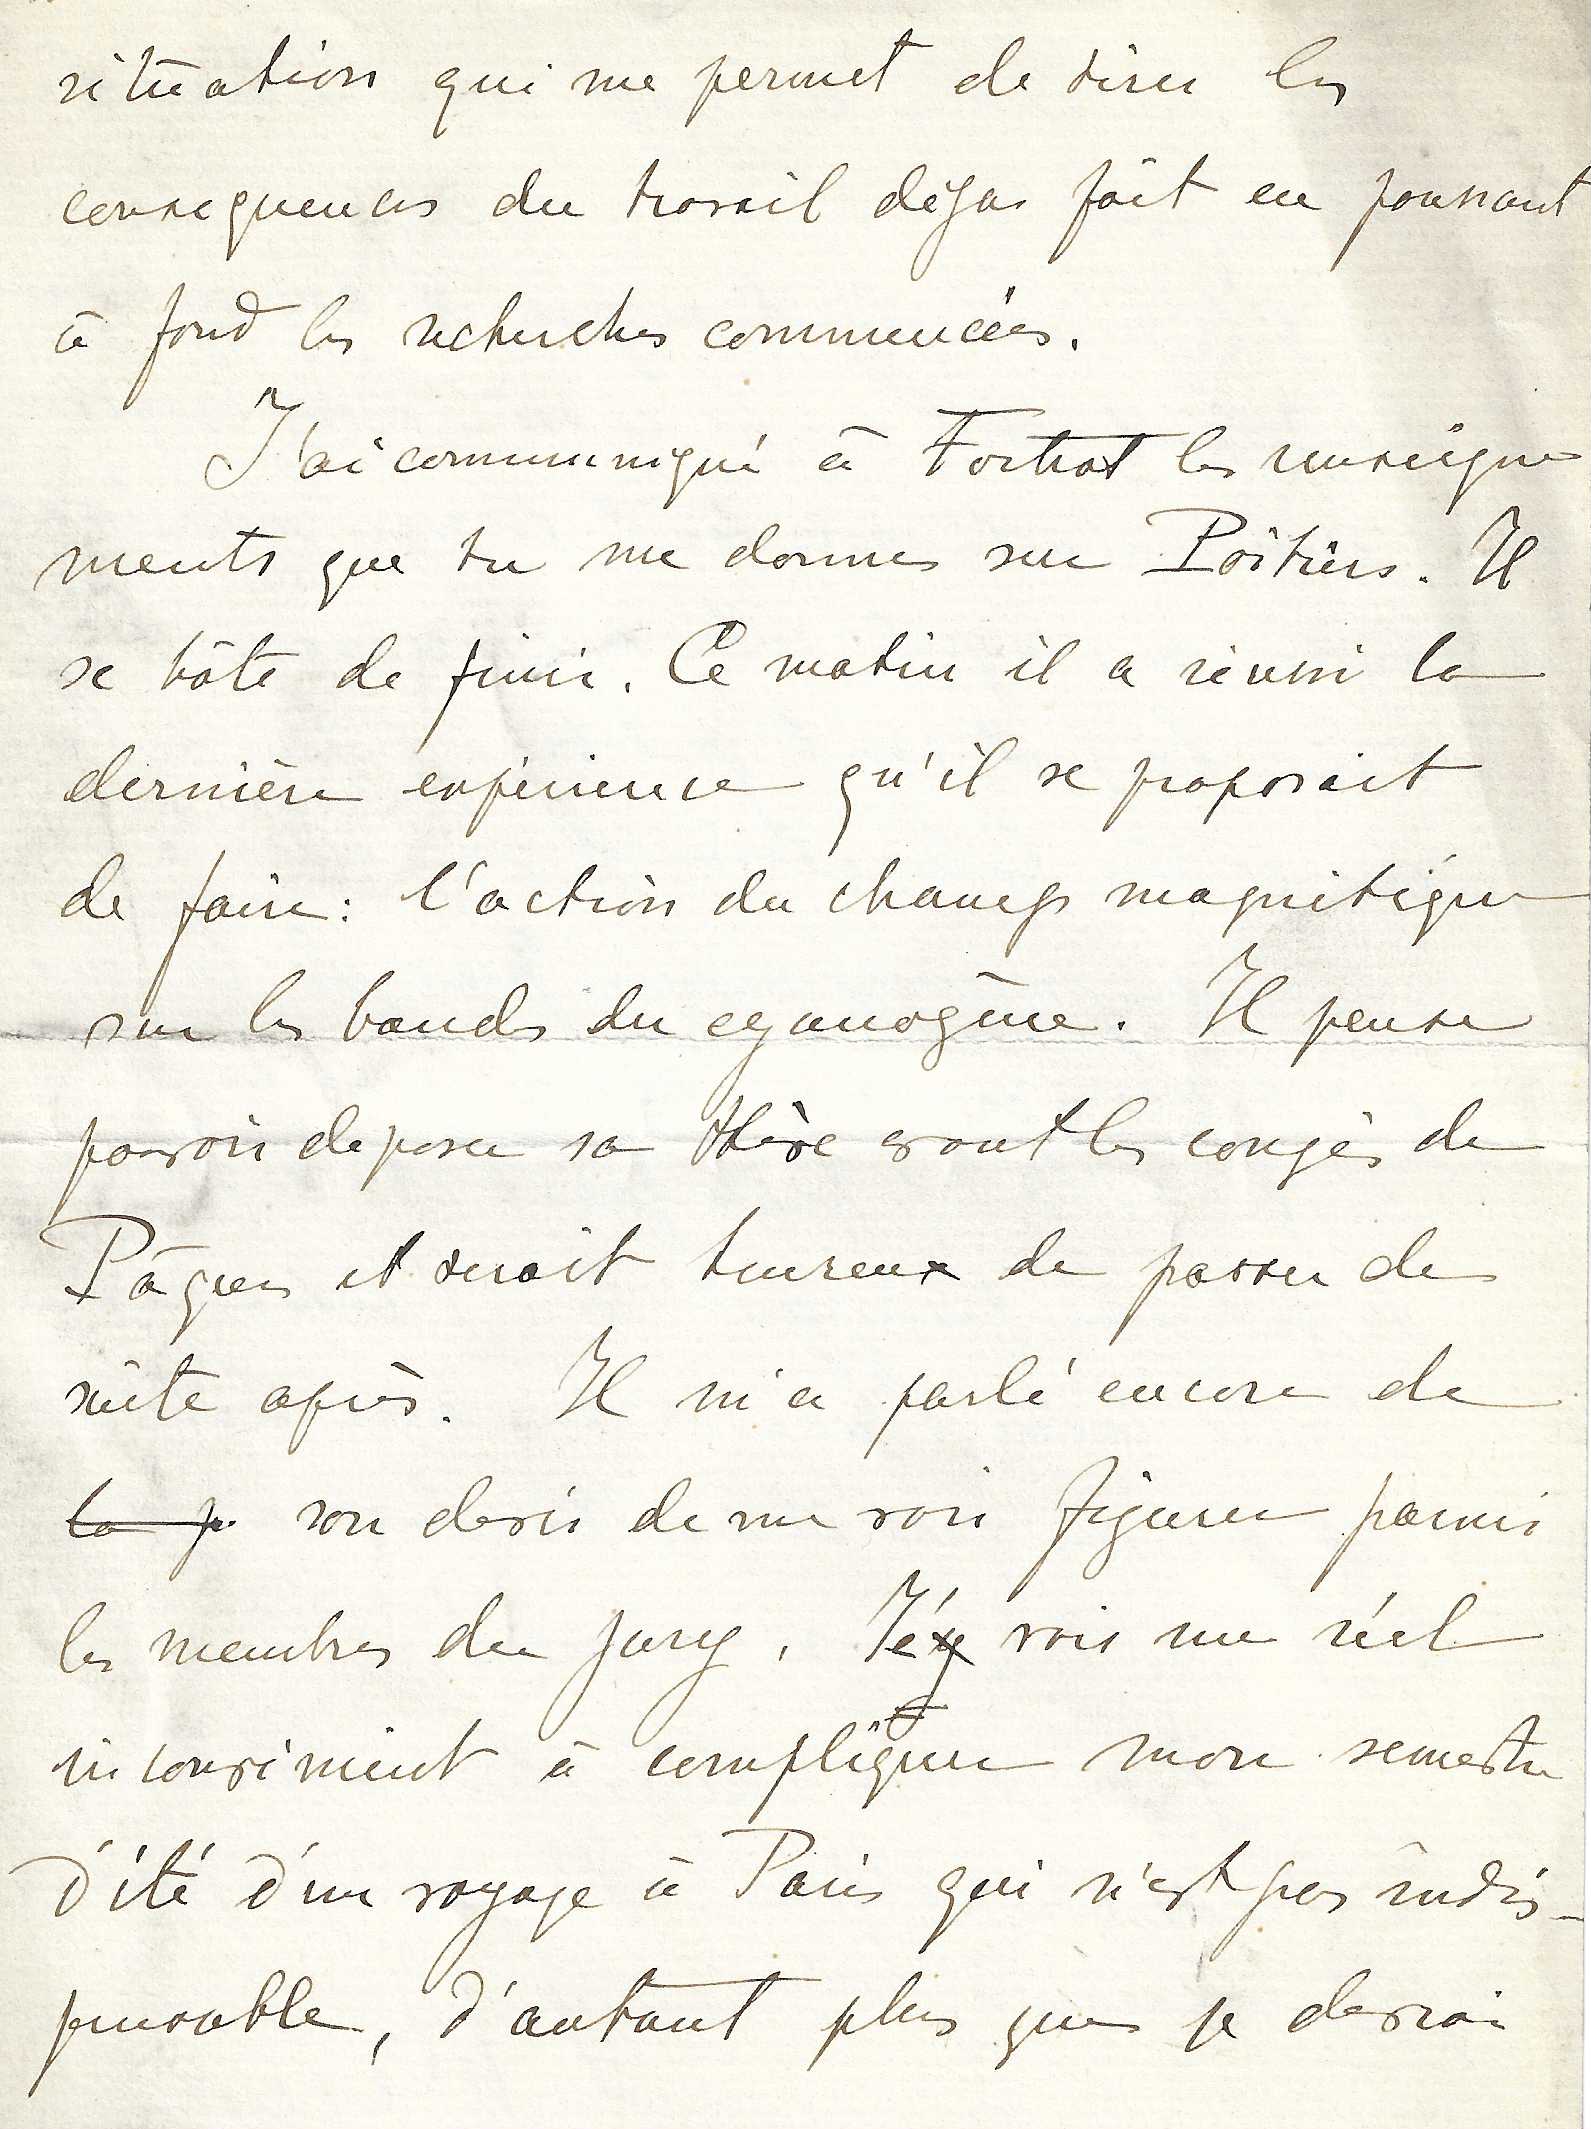 situation qui me permet de tirer les
consequences du travail déjà fait en poussant
à fond les recherches commencées.
J'ai communiqué à Fortrat les renseigne
ments que tu me donnes sur Poitiers. Il
se hâte de finir. Ce matin il a réussi la
dernière expérience qu'il se proposait
de faire : l'action du champ magnétique
sur les bandes du cyanogène. Il pense
pouvoir deposer sa thèse avant les congés de
Pâques et serait heureux de passer de
suite après. Il m'a parlé encore de
son desir de me voir figurer parmi
les membres du jury. J'y vois un réel
inconvénient à compliquer mon semestre
d'été d'un voyage à Paris qui n'est pas indis-
pensable, d'autant plus que je devrai